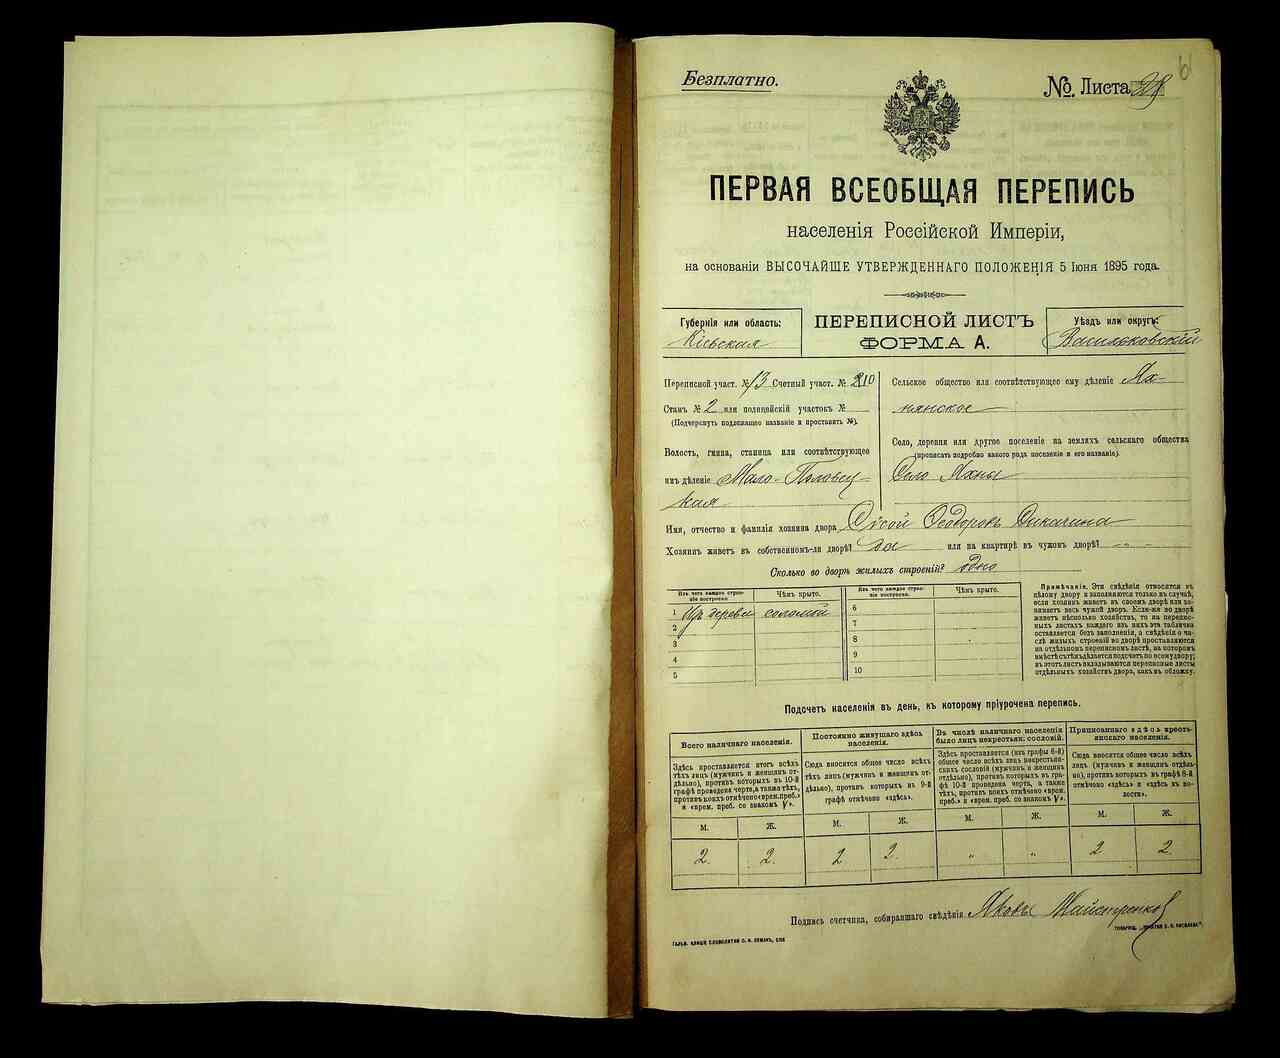 Безплатно.
№ Листа 28
6
ПЕРВАЯ ВСЕОБЩАЯ ПЕРЕПИСЬ
населенія Россійской Имперіи,
на основаніи ВЫСОЧАЙШЕ УТВЕРЖДЕННАГО ПОЛОЖЕНІЯ 5 Іюня 1895 года.
Губернія или область:
Кіевская
ПЕРЕПИСНОЙ ЛИСТЪ
ФОРМА А.
Уѣздъ или округъ:
Васильковскій
Переписной участ. № 13 Счетный участ. № 210
Станъ № 2 или полицейскій участокъ №
(Подчеркнуть подлежащее названіе и проставить №).
Волость, гмина, станица или соотвѣтствующее
имъ дѣленіе Мало-Половец-
кая
Сельское общество или соотвѣтствующее ему дѣленіе Ях-
нянское
Село, деревня или другое поселеніе на земляхъ сельскаго общества
(прописать подробно какого рода поселеніе и его названіе).
Село Яхны
Имя, отчество и фамилія хозяина двора Сісой Ѳеодоровъ
Хозяинъ живетъ въ собственномъ-ли дворѣ? да или на квартирѣ въ чужомъ дворѣ? " "
Сколько во дворѣ жилыхъ строеній? одно
Изъ чего каждое строе-
ніе построено.
Чѣмъ крыто.
Изъ чего каждое строе-
ніе построено.
Чѣмъ крыто.
1 Изъ дерева соломой
2
3
4
5
6
7
8
9
10
Примѣчаніе. Эти свѣдѣнія относятся къ
цѣлому двору и заполняются только въ случаѣ,
если хозяинъ живетъ въ своемъ дворѣ или за-
нимаетъ весь чужой дворъ. Если-же во дворѣ
живетъ нѣсколько хозяйствъ, то на перепис-
ныхъ листахъ каждаго изъ нихъ эта табличка
оставляется безъ заполненія, а свѣдѣнія о чи-
слѣ жилыхъ строеній во дворѣ проставляются
на отдѣльномъ переписномъ листѣ, на которомъ
вмѣстѣ съ тѣмъ дѣлается подсчетъ по всему двору;
въ этотъ листъ вкладываются переписные листы
отдѣльныхъ хозяйствъ двора, какъ въ обложку.
Подсчетъ населенія въ день, къ которому пріурочена перепись.
Всего наличнаго населенія.
Здѣсь проставляется итогъ всѣхъ
тѣхъ лицъ (мужчинъ и женщинъ от-
дѣльно), противъ которыхъ въ 10-й
графѣ проведена черта, а также тѣхъ,
противъ коихъ отмѣчено «врем. преб.»
и «врем. преб. со знакомъ V».
Постоянно живущаго здѣсь
населенія.
Сюда вносится общее число всѣхъ
тѣхъ лицъ (мужчинъ и женщинъ от-
дѣльно), противъ которыхъ въ 9-й
графѣ отмѣчено «здѣсь».
Въ числѣ наличнаго населенія
было лицъ некрестьян. сословій.
Здѣсь проставляется (изъ графы 6-й)
общее число всѣхъ лицъ некрестьян-
скихъ сословій (мужчинъ и женщинъ
отдѣльно), противъ которыхъ въ гра-
фѣ 10-й проведена черта, а также
противъ коихъ отмѣчено «врем.
преб.» и «врем. преб. со знакомъ V».
Приписаннаго здѣсь кресть-
янскаго населенія.
Сюда вносится общее число всѣхъ
лицъ (мужчинъ и женщинъ отдѣль-
но), противъ которыхъ въ графѣ 8-й
отмѣчено «здѣсь» и «здѣсь въ во-
лости».
М. Ж. М. Ж. М. Ж. М. Ж.
2. 2. 2 2. " " 2 2.
Подпись счетчика, собиравшаго свѣдѣнія Яковъ Майстренко